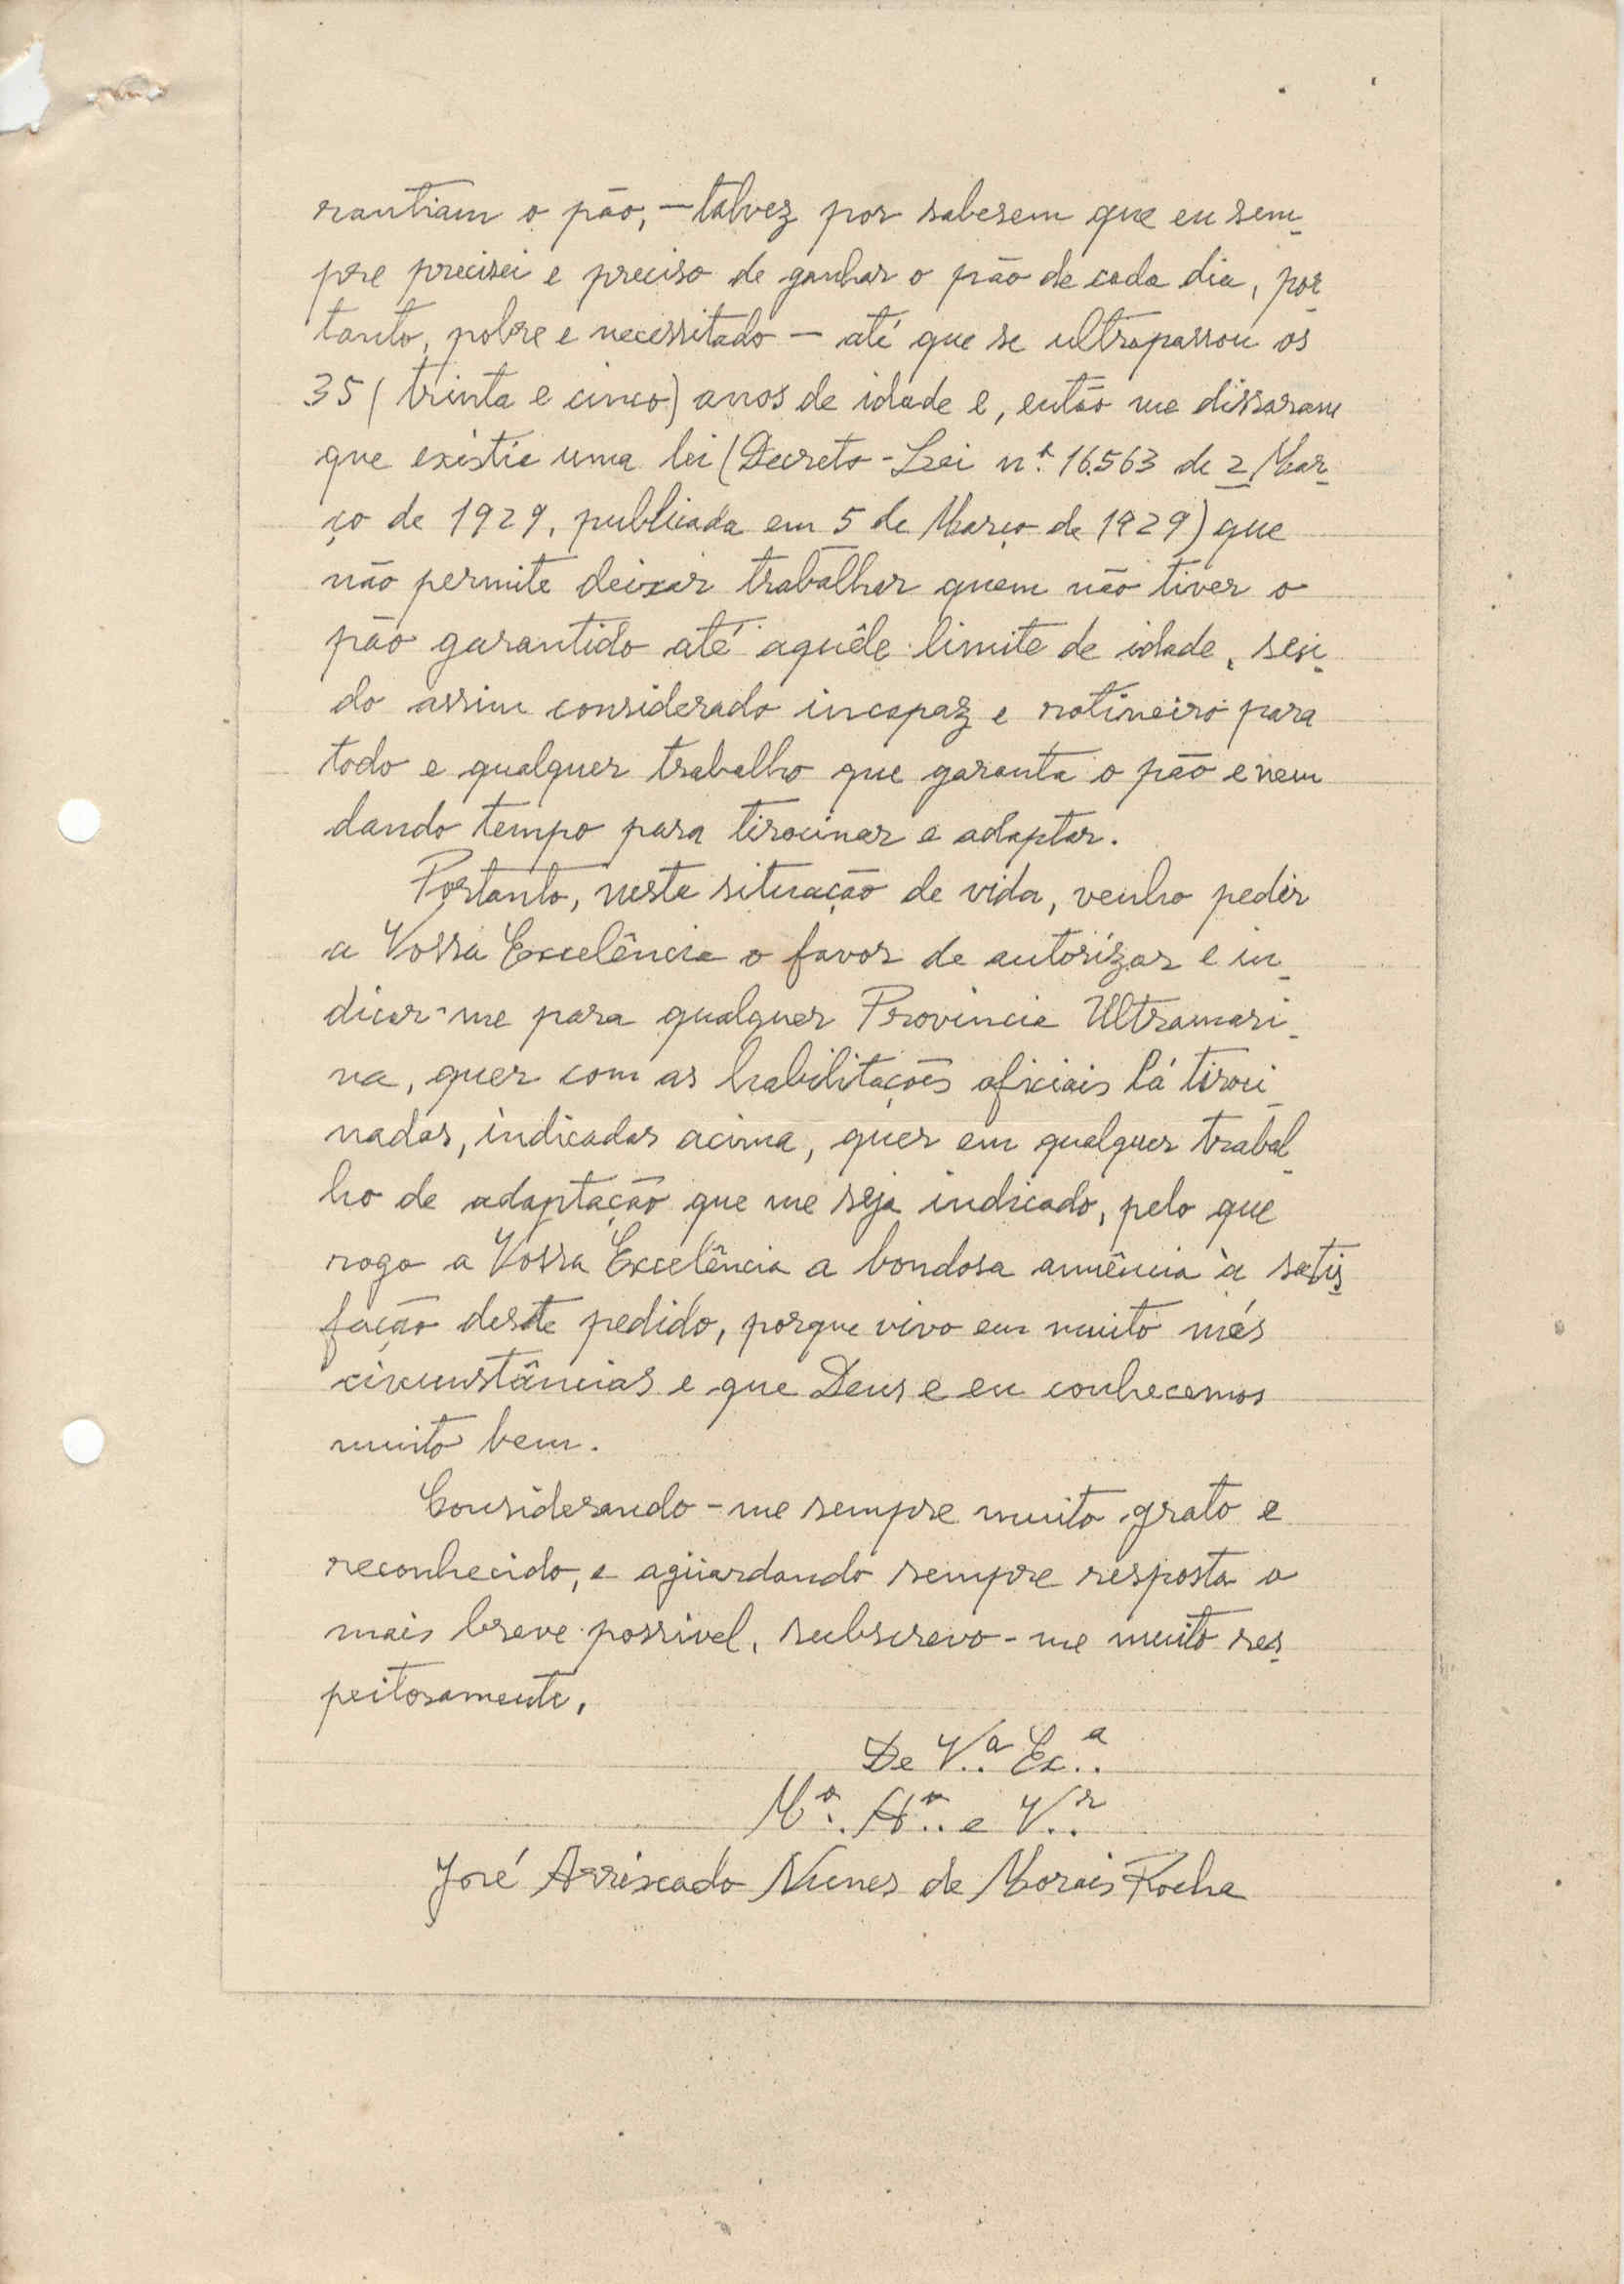 rantiam o pão, - talvez por saberem que eu sem-
pre precisei e preciso de ganhar o pão de cada dia, por-
tanto, pobre e necessitado - até que se ultrapassou os
35 (trinta e cinco) anos de idade e, então me disseram
que existia uma lei (Decreto-Lei nº. 16.563 de 2 Mar-
ço de 1929, publicada em 5 de Março de 1929) que
não permite deixar trabalhar quem não tiver o
pão garantido até aquêle limite de idade, sen-
do assim considerado incapaz e rotineiro para
todo e qualquer trabalho que garanta o pão e nem
dando tempo para tirocinar e adaptar.
Portanto, nesta situação de vida, venho pedir
a Vossa Excelência o favor de autorizar e in-
dicar-me para qualquer Provincia Ultramari-
na, quer com as habilitações oficiais lá tiroci-
nadas, indicadas acima, quer em qualquer trabal-
ho de adaptação que me seja indicado, pelo que
rogo a Vossa Excelência a bondosa anuência à satis-
fação deste pedido, porque vivo em muito más
circunstâncias e que Deus e eu conhecemos
muito bem.
Considerando-me sempre muito grato e
reconhecido, e agüardando sempre resposta o
mais breve possivel, subscrevo-me muito res-
peitosamente,
De Vª. Exª.
Mº. Aº. e Vʳ.
José Arriscado Nunes de Morais Rocha